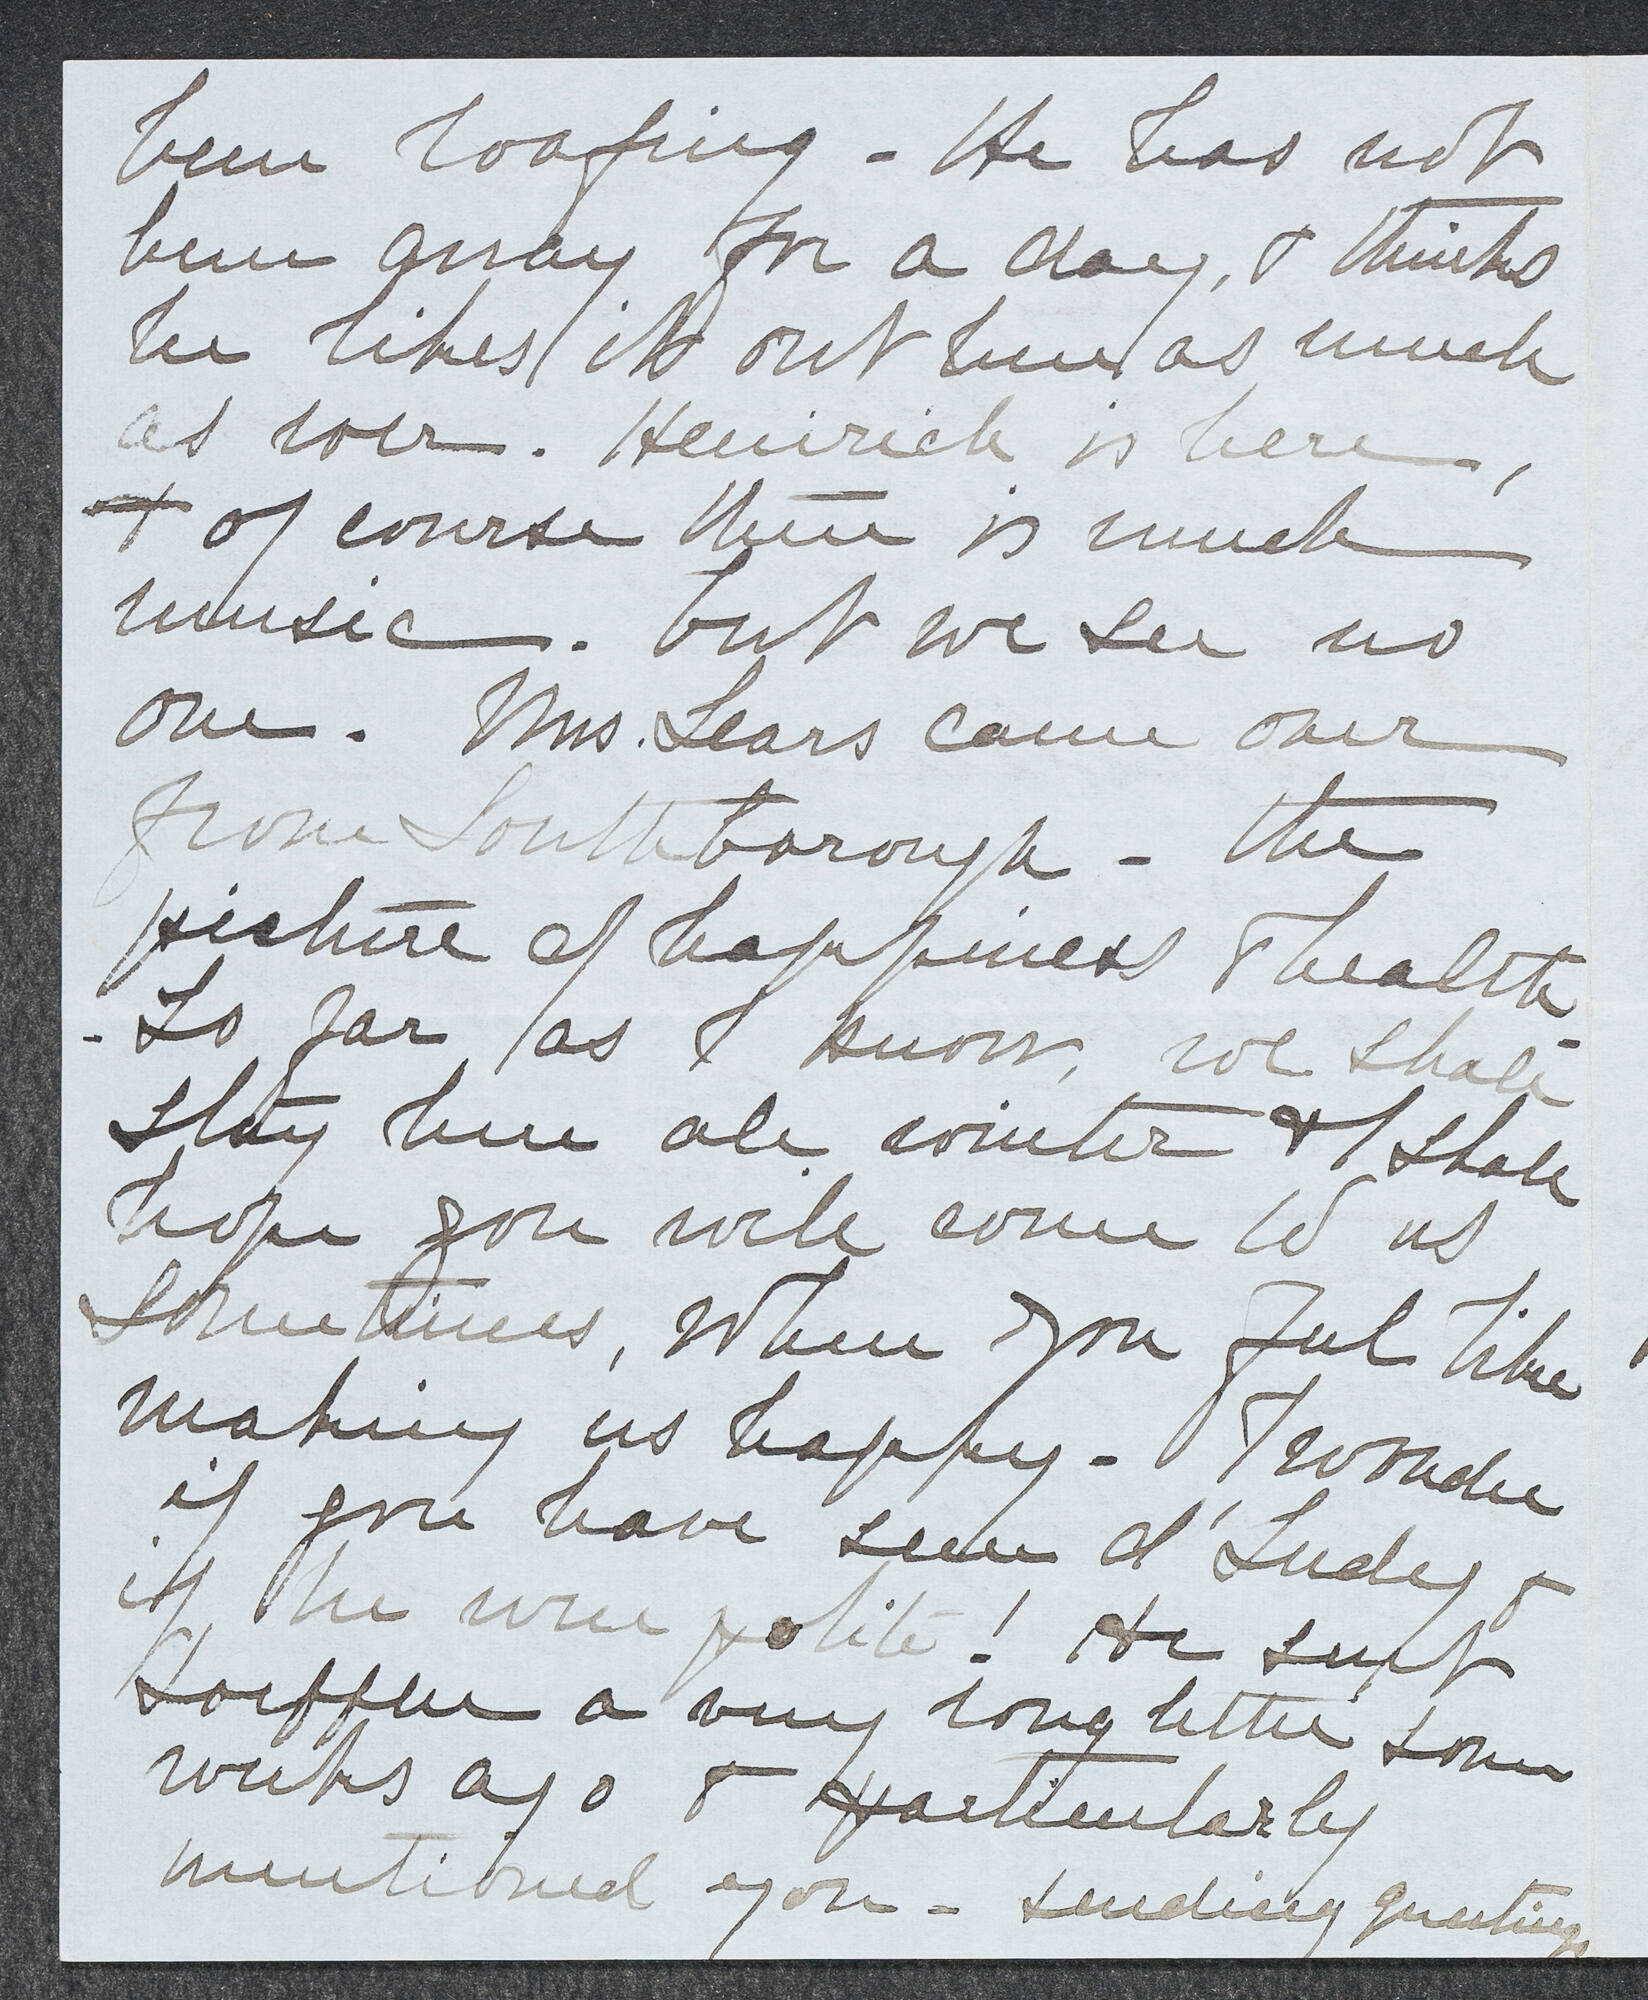 been loafing - He has not
been away for a day, & thinks
he likes it out here as much
as ever. Heinrich is here,
& of course there is much
music. but we see no
one. Mrs. Sears came over
from Southborough - the
picture of happiness & health
- So far as I know, we shall
stay here all winter & I shall
hope you will come to us
sometimes, when you feel like
making us happy - I wonder
if you have seen d'Indy &
if he were polite! He sent
Loeffler a very long letter some
weeks ago & particularly
mentioned you - sending greetings